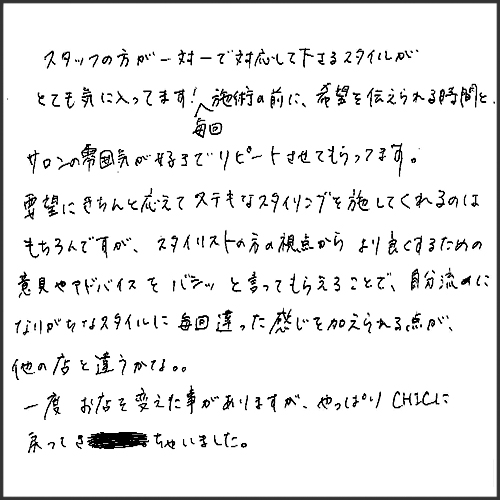 スタッフの方が一対一で対応して下さるスタイルが
とても気に入ってます！毎回施術の前に、希望を伝えられる時間と、
サロンの雰囲気が好きでリピートさせてもらってます。
要望にきちんと応えてステキなスタイリングを施してくれるのは
もちろんですが、スタイリストの方の視点からより良くするための
意見やアドバイスをバシッと言ってもらえることで、自分流めに
なりがちなスタイルに毎回違った感じを加えられる点が、
他の店と違うかな。。
一度お店を変えた事がありますが、やっぱりCHICに
戻ってきちゃいました。